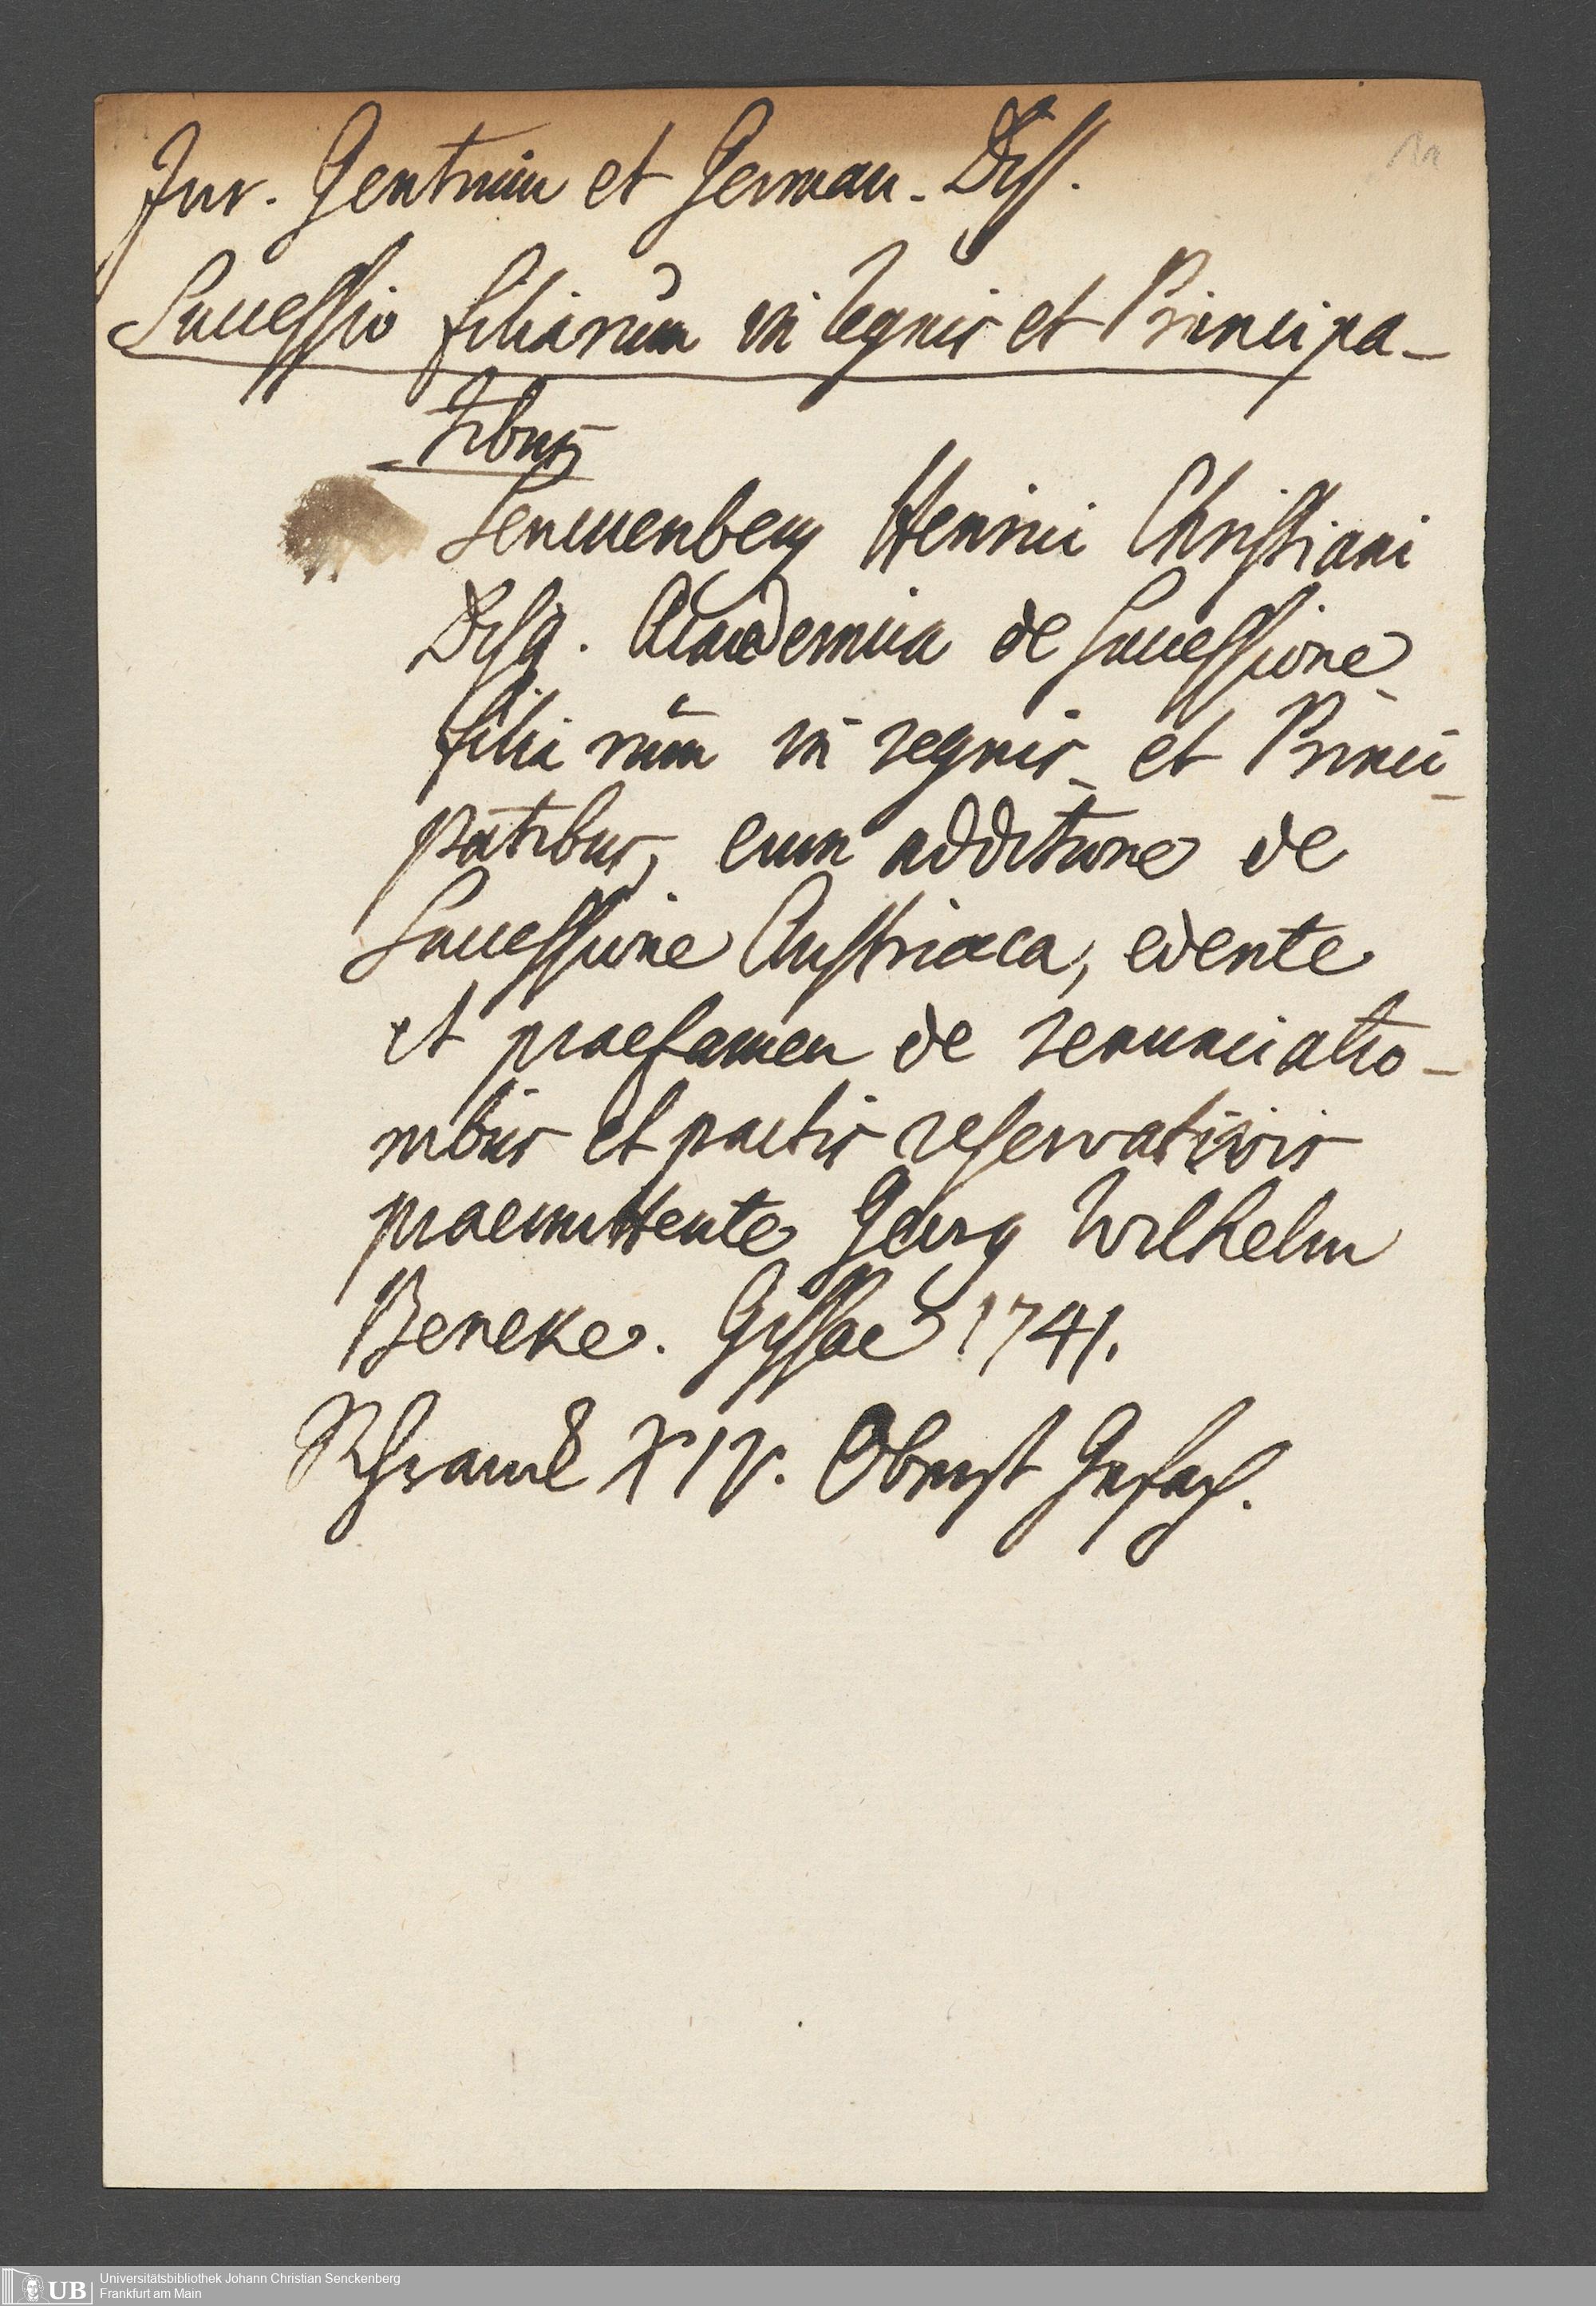 Jur. Gentium et German. Diss.
Successio filiarum in regnis et Principa-
tibus
Senckenberg Henrici Christiani
Disq. Academica de Successione
filiarum in regnis et Princi-
patibus, cum additione de
Successione Austriaca, edente
et praefamen de renunciatio-
nibus et pactis reservativis
praemittente Georg Wilhelm
Beneke. Gissae 1741.
XIV. Oberst Gefach.
Universitätsbibliothek Johann Christian Senckenberg
Frankfurt am Main
UB